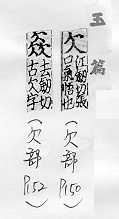 玉篇
欠
江劒切張
口氣悟也
(欠部 P150)
去劒切
古欠字
(欠部 P152)